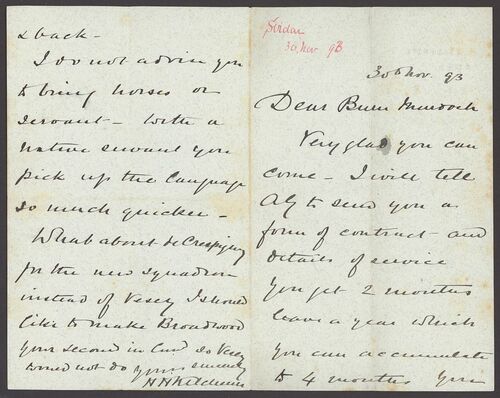 Sirdar
30, Nov 93
30th Nov. 93
Dear Burn Murdoch
Very glad you can
come - I will tell
AG to send you a
form of contract and
details of service
You get 2 months
leave a year which
you can accumulate
to 4 months You
& back -
I do not advise you
to bring horses or
servant - With a
native servant you
pick up the language
so much quicker -
What about de Crespigny
for the new squadron
instead of Vesey I should
like to make Broadwood
your second in Cmd so Vesey
would not do Yours sincerely
HH Kitchener